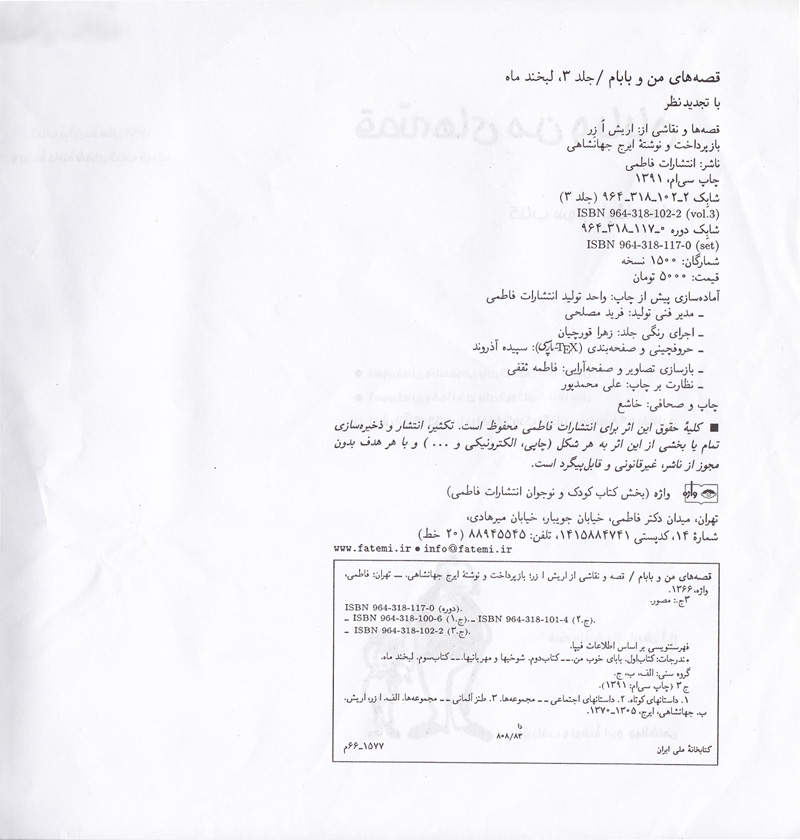 قصه‌های من و بابام / جلد ۳، لبخند ماه
با تجدیدنظر
قصه‌ها و نقاشی از: اریش اُ زِر
بازپرداخت و نوشتهٔ ایرج جهانشاهی
ناشر: انتشارات فاطمی
چاپ سی‌ام، ۱۳۹۱
شابک ۲ـ۱۰۲ـ۳۱۸ـ۹۶۴ (جلد ۳)
ISBN 964-318-102-2 (vol.3)
شابک دوره ۰ـ۱۱۷ـ۳۱۸ـ۹۶۴
ISBN 964-318-117-0 (set)
شمارگان: ۱۵۰۰ نسخه
قیمت: ۵۰۰۰ تومان
آماده‌سازی پیش از چاپ: واحد تولید انتشارات فاطمی
ـ مدیر فنی تولید: فرید مصلحی
ـ اجرای رنگی جلد: زهرا قورچیان
ـ حروفچینی و صفحه‌بندی (TEX-پارسی): سپیده آذروند
ـ بازسازی تصاویر و صفحه‌آرایی: فاطمه ثقفی
ـ نظارت بر چاپ: علی محمدپور
چاپ و صحافی: خاشع
■ کلیهٔ حقوق این اثر برای انتشارات فاطمی محفوظ است. تکثیر، انتشار و ذخیره‌سازی
تمام یا بخشی از این اثر به هر شکل (چاپی، الکترونیکی و ...) و با هر هدف بدون
مجوز از ناشر، غیرقانونی و قابل‌پیگرد است.
واژه واژه (بخش کتاب کودک و نوجوان انتشارات فاطمی)
تهران، میدان دکتر فاطمی، خیابان جویبار، خیابان میرهادی،
شمارهٔ ۱۴، کدپستی ۱۴۱۵۸۸۴۷۴۱، تلفن: ۸۸۹۴۵۵۴۵ (۲۰ خط)
www.fatemi.ir ● info@fatemi.ir
قصه‌های من و بابام / قصه و نقاشی از اریش ا زر؛ بازپرداخت و نوشتهٔ ایرج جهانشاهی. ــ تهران: فاطمی،
واژه، ۱۳۶۶.
۳ج.: مصور.
ISBN 964-318-117-0 (دوره).
ــ ISBN 964-318-100-6 (ج.۱). ــ ISBN 964-318-101-4 (ج.۲).
ــ ISBN 964-318-102-2 (ج.۳).
فهرستنویسی بر اساس اطلاعات فیپا.
مندرجات: کتاب‌اول. بابای خوب من. ــ کتاب‌دوم. شوخیها و مهربانیها. ــ کتاب‌سوم. لبخند ماه.
گروه سنی: الف، ب، ج.
ج ۳ (چاپ سی‌ام: ۱۳۹۱).
۱. داستانهای کوتاه. ۲. داستانهای اجتماعی ــ مجموعه‌ها. ۳. طنز آلمانی ــ مجموعه‌ها. الف. ا زر، اریش.
ب. جهانشاهی، ایرج، ۱۳۰۵ـ۱۳۷۰.
دا
۸۰۸/۸۳
کتابخانهٔ ملی ایران ۱۵۷۷ـ۶۶م